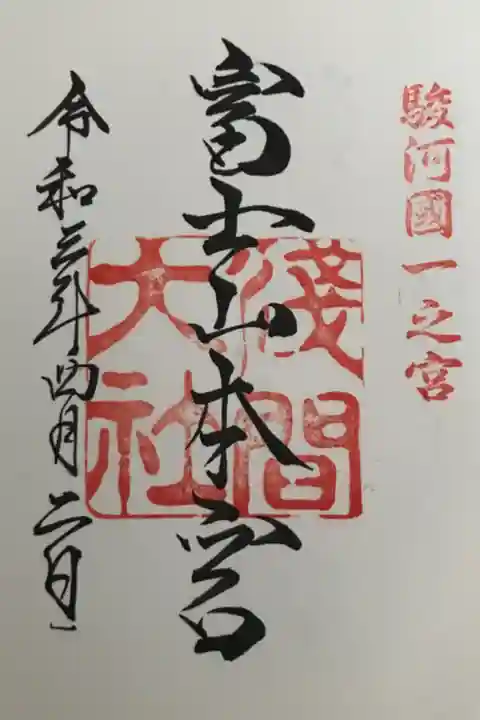 駿河國一之宮
富士山本宮
淺間
大社
令和三年四月二日